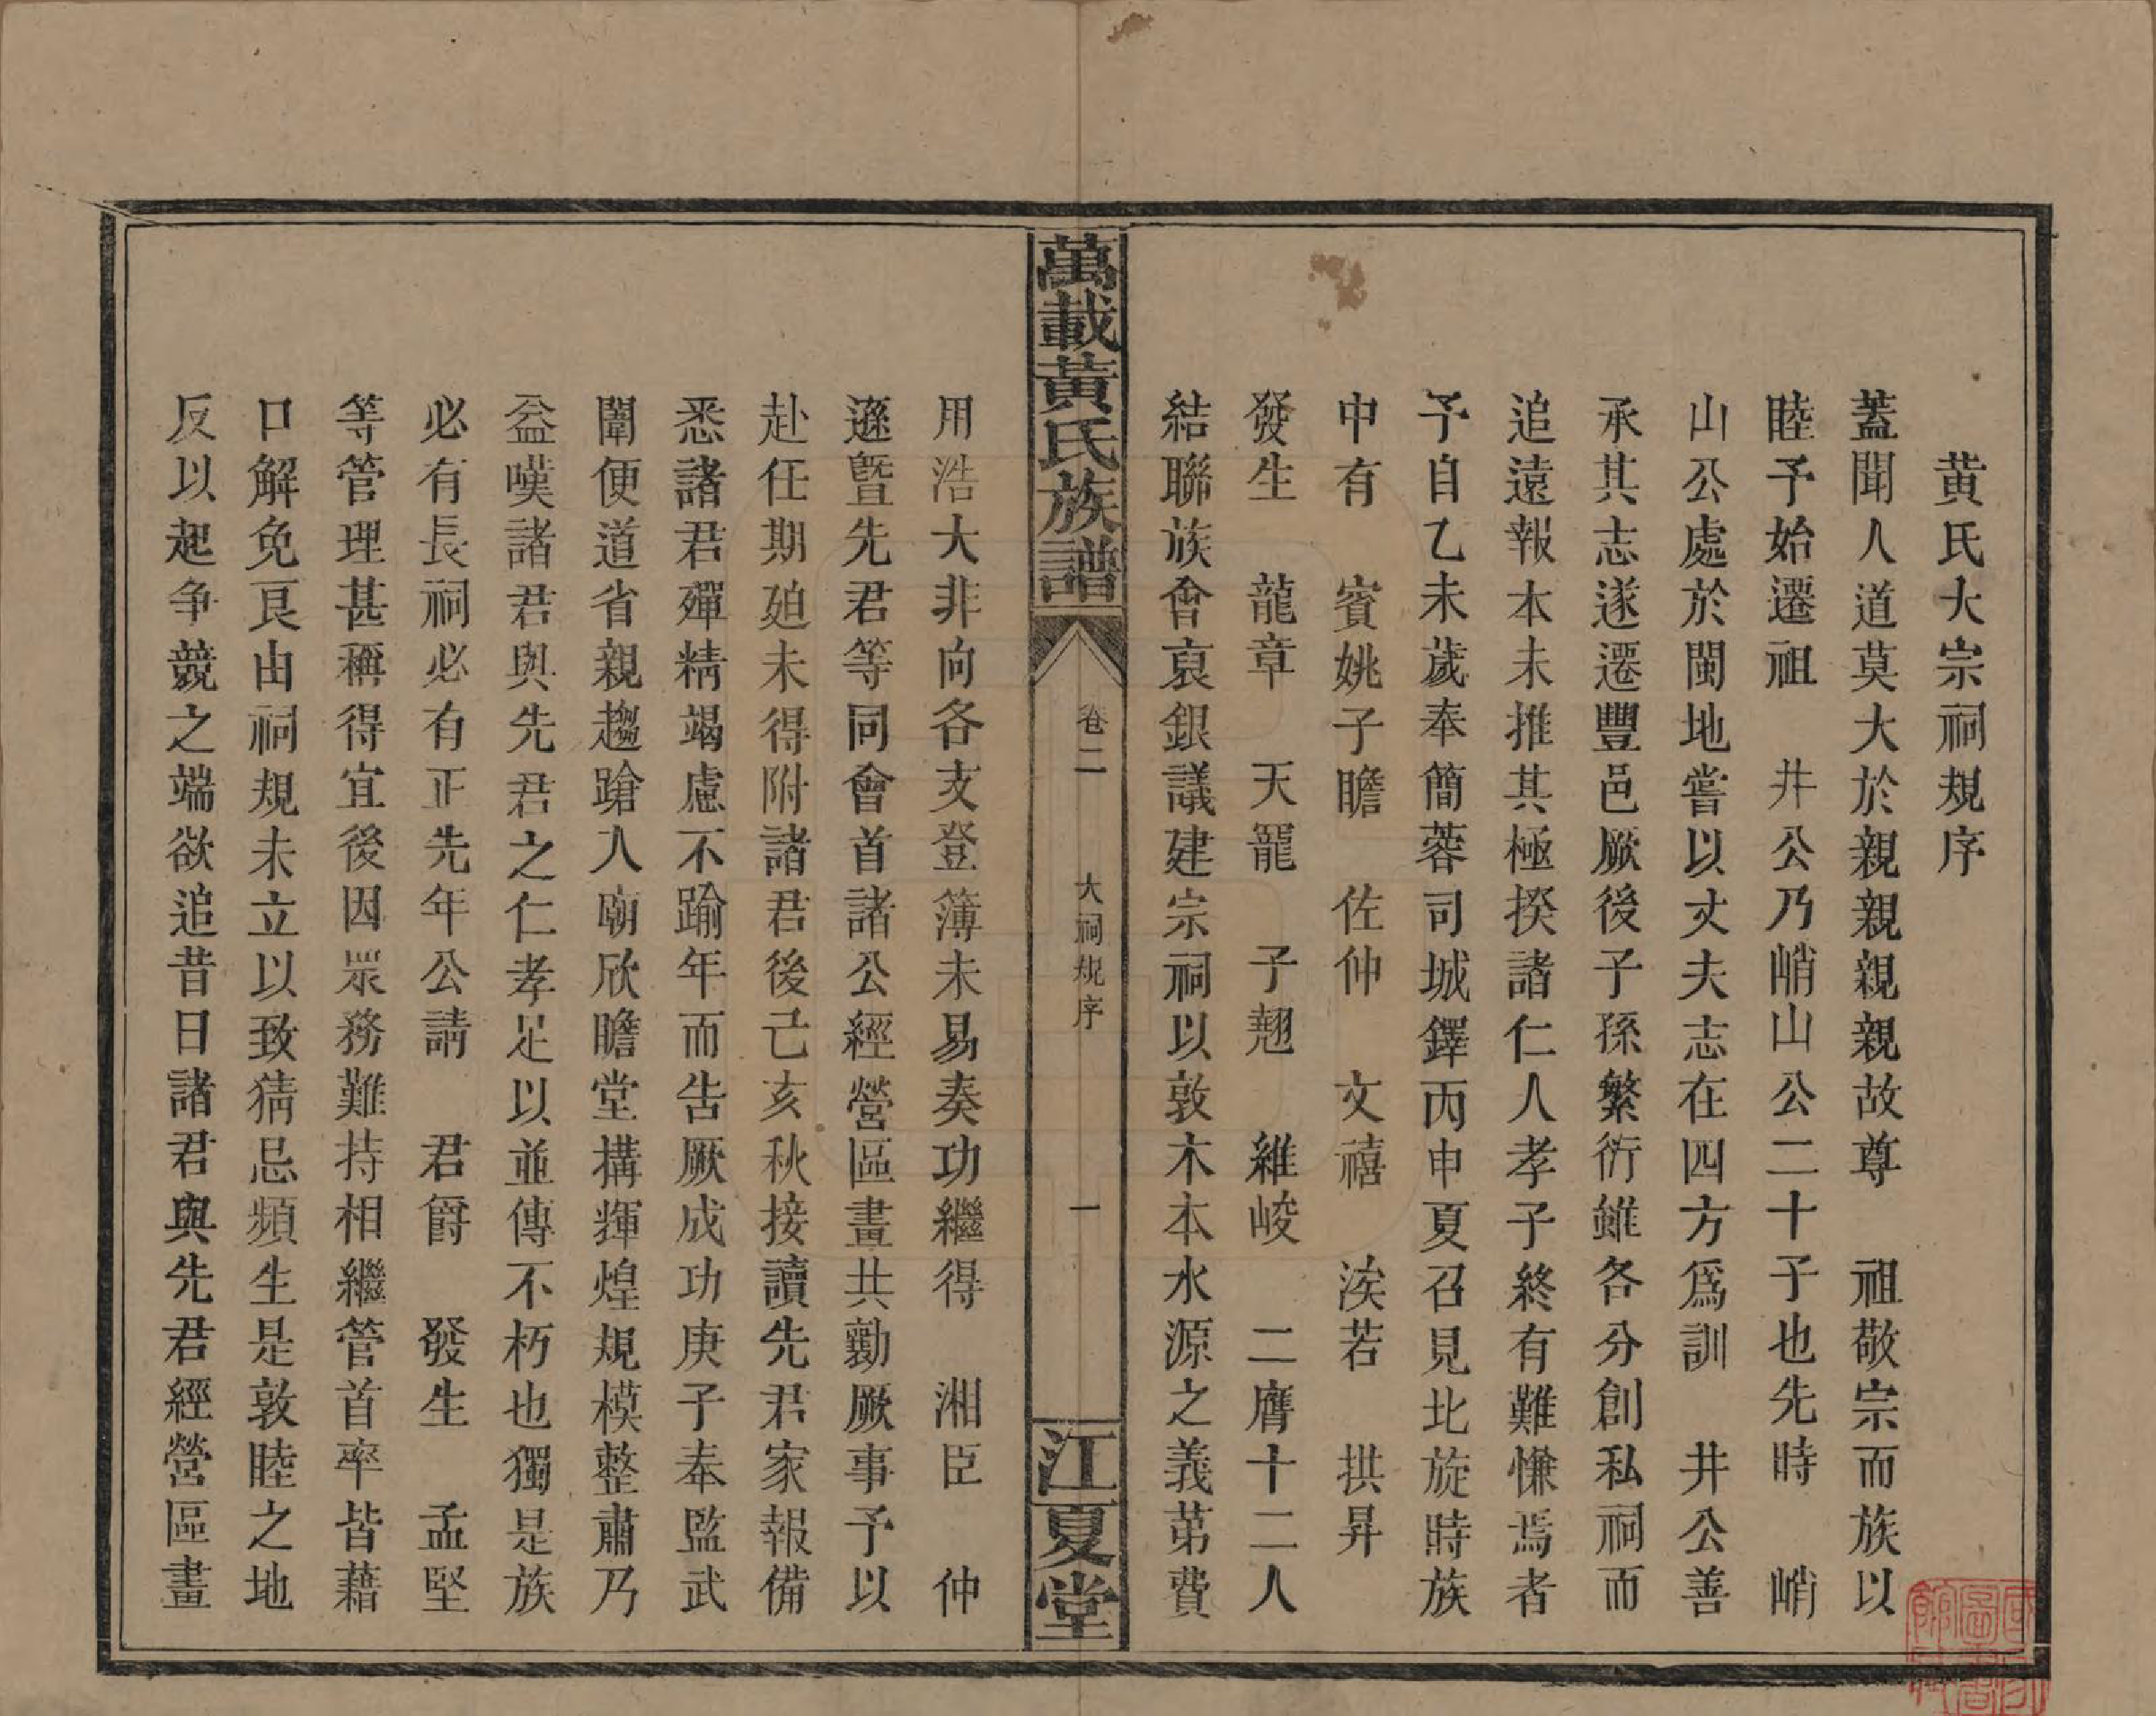 黄氏大宗祠規序
蓋聞人道莫大於親親親親故尊　祖敬宗而族以
睦予始遷祖　井公乃峭山公二十子也先時　峭
山公處於閩地嘗以丈夫志在四方爲訓　井公善
承其志遂遷豐邑厥後子孫繁衍雖各分創私祠而
追遠報本未推其極揆諸仁人孝子終有難慊焉者
予自乙未歲奉簡蓉司城鐸丙申夏召見北旋時族
中有　賓姚子瞻　佐仲　文禧　涘若　拱昇
發生　龍章　天寵　子翹　維峻　二膺十二人
結聯族會裒銀議建宗祠以敦木本水源之義第費
萬載黃氏族譜
卷二
大祠規序
一
江夏堂
用浩大非向各支登簿未易奏功繼得　湘臣　仲
遜暨先君等同會首諸公經營區畫共勷厥事予以
赴任期廹未得附諸君後己亥秋接讀先君家報備
悉諸君殫精竭慮不踰年而告厥成功庚子奉監武
闈便道省親趨蹌入廟欣瞻堂搆輝煌規模整肅乃
益嘆諸君與先君之仁孝足以並傳不朽也獨是族
必有長祠必有正先年公請　君爵　發生　孟堅
等管理甚稱得宜後因眾務難持相繼管首率皆藉
口解免良由祠規未立以致猜忌頻生是敦睦之地
反以起争競之端欲追昔日諸君與先君經營區畫